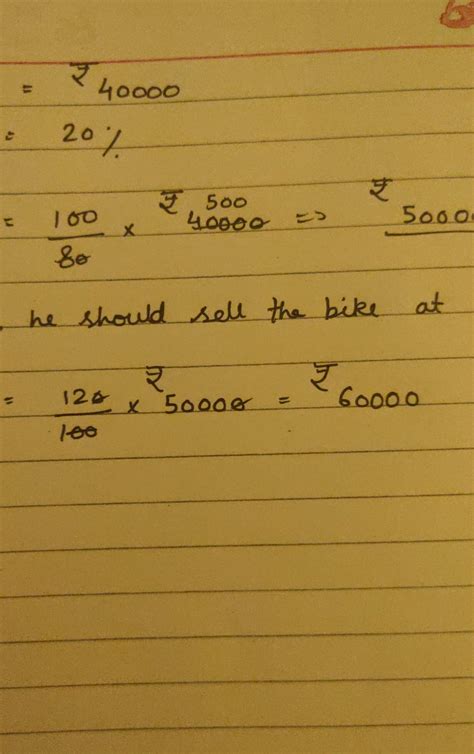 = ₹ 40000
= 20 %
= 100/80 × ₹ 40000 500 => ₹ 5000
he should sell the bike at
= 120/100 × ₹ 50000 = ₹ 60000